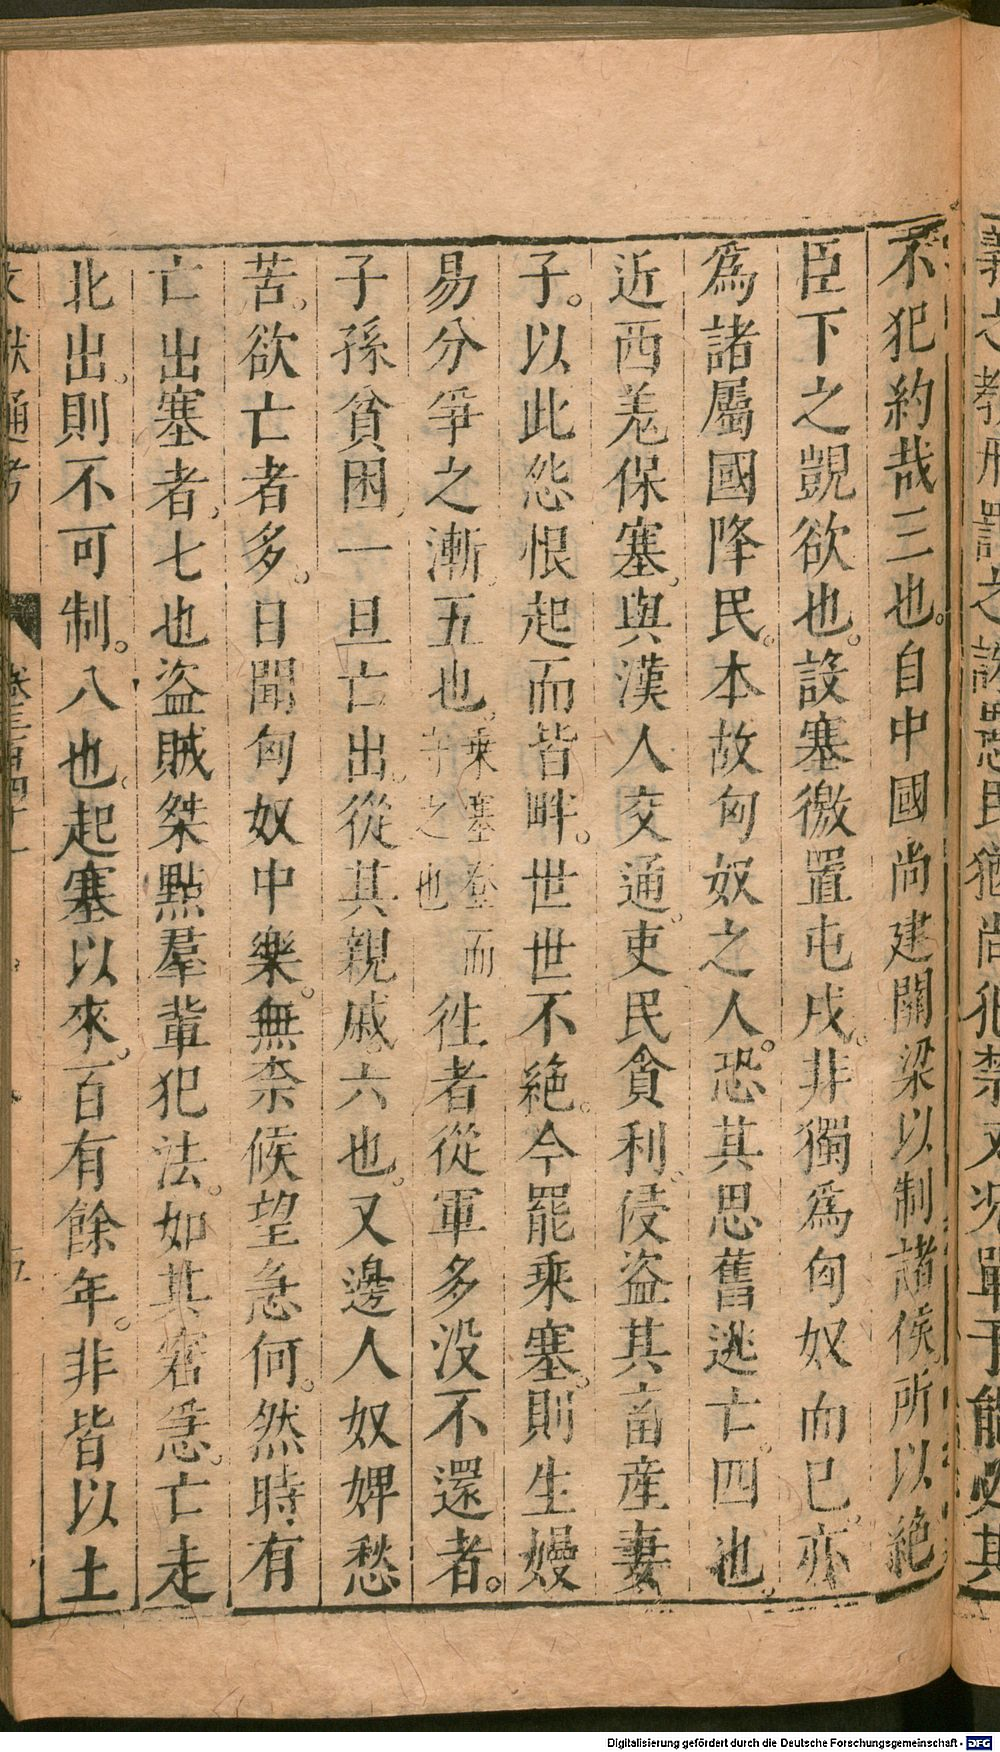 義之教刑罰之誅愚民猶尚犯禁又况單于能必其
不犯約哉三也。自中國尚建關梁以制諸侯。所以絶
臣下之覬欲也。設塞徼置屯戍。非獨為匈奴而已。亦
為諸屬國降民。本故匈奴之人。恐其思舊逃亡。四也。
近西羌保塞。與漢人交通。吏民貪利。侵盗其畜産妻
子。以此怨恨起而皆畔。世世不絶。今罷乘塞。則生嫚
易分爭之漸。五也。乘塞登而守之也徃者從軍多没不還者。
子孫貧困。一旦亡出。從其親戚。六也。又邊人奴婢愁
苦。欲亡者多。日聞匈奴中樂。無柰候望急何。然時有
亡出塞者。七也盗賊桀黠羣輩犯法。如其窘急。亡走
北出。則不可制。八也。起塞以來。百有餘年。非皆以土
文獻通考 卷三百四十一 五
Digitalisierung gefördert durch die Deutsche Forschungsgemeinschaft - DFG